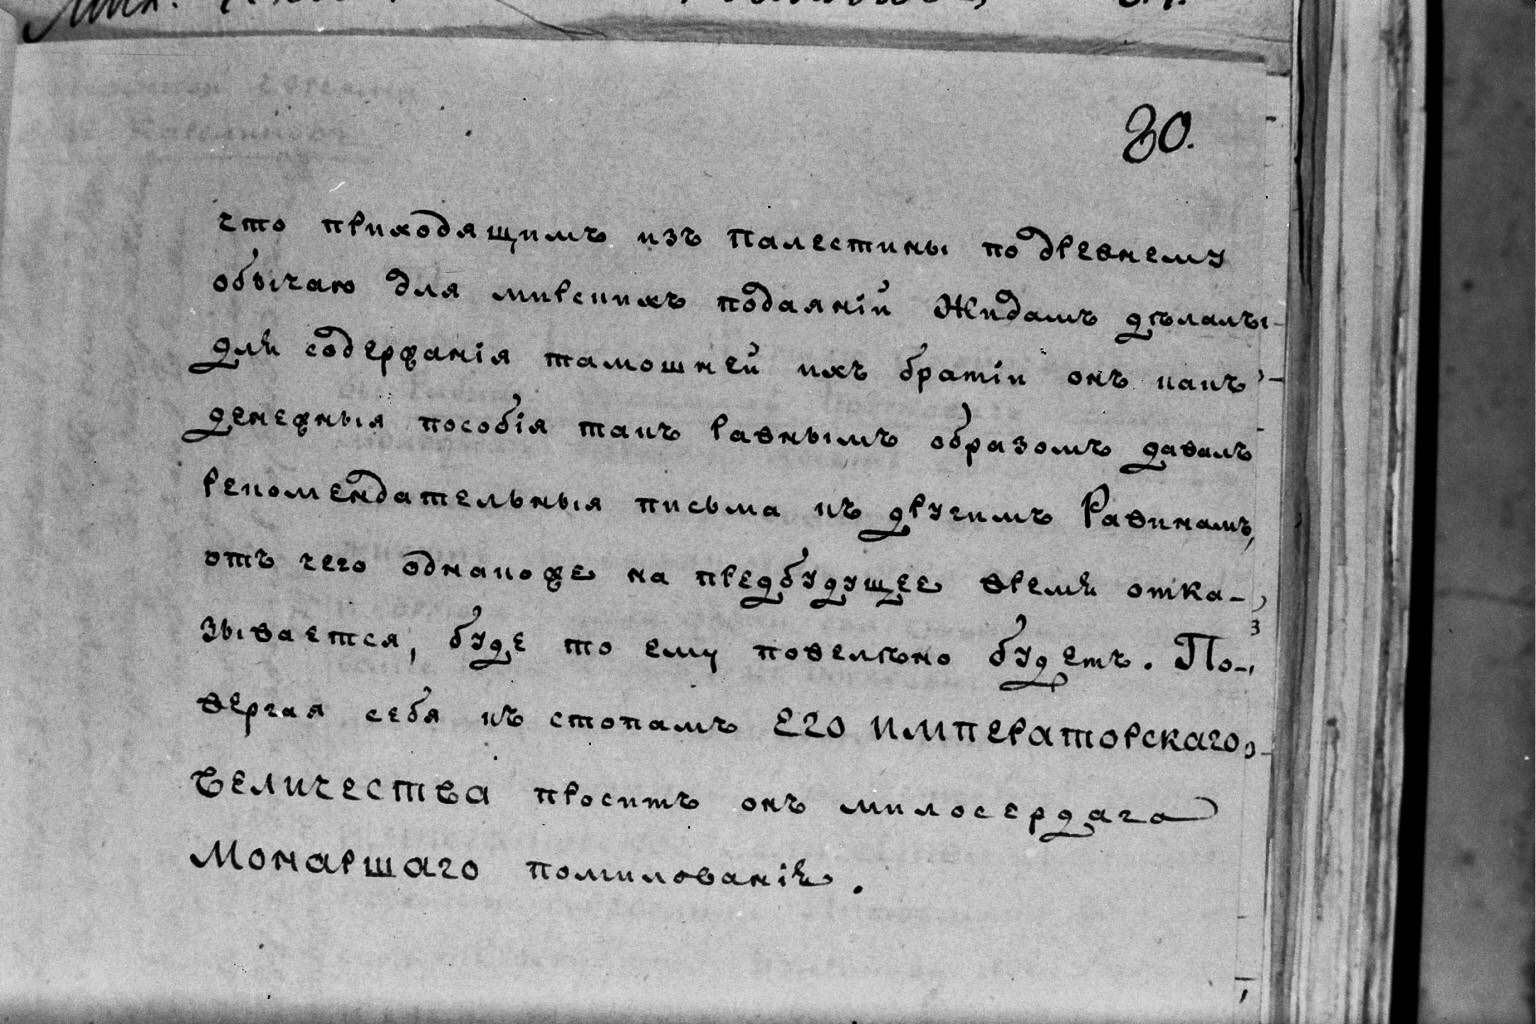 80.
что приходящимъ изъ Палестины по древнему
обычаю для мирскихъ подаяній Жидамъ дѣлалъ
для содержанія тамошней ихъ братіи онъ какъ
денежныя пособія такъ равнымъ образомъ давалъ
рекомендательныя письма къ другимъ Равинамъ,
отъ чего однакоже на предбудущее время отка-
зывается, буде то ему повелѣно будетъ. По-
вергая себя къ стопамъ ЕГО ИМПЕРАТОРСКАГО
ВЕЛИЧЕСТВА проситъ онъ милосердаго
Монаршаго помилованія.